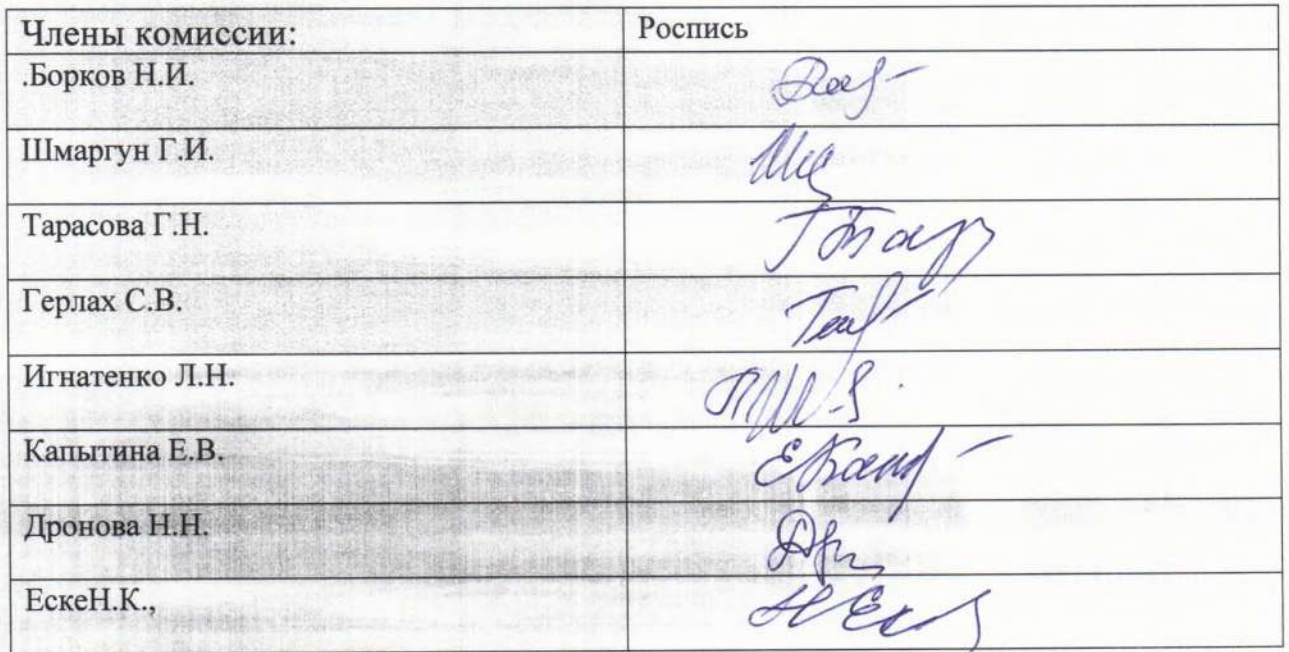 Члены комиссии: Роспись
.Борков Н.И.
Шмаргун Г.И.
Тарасова Г.Н.
Герлах С.В.
Игнатенко Л.Н.
Капытина Е.В.
Дронова Н.Н.
ЕскеН.К.,